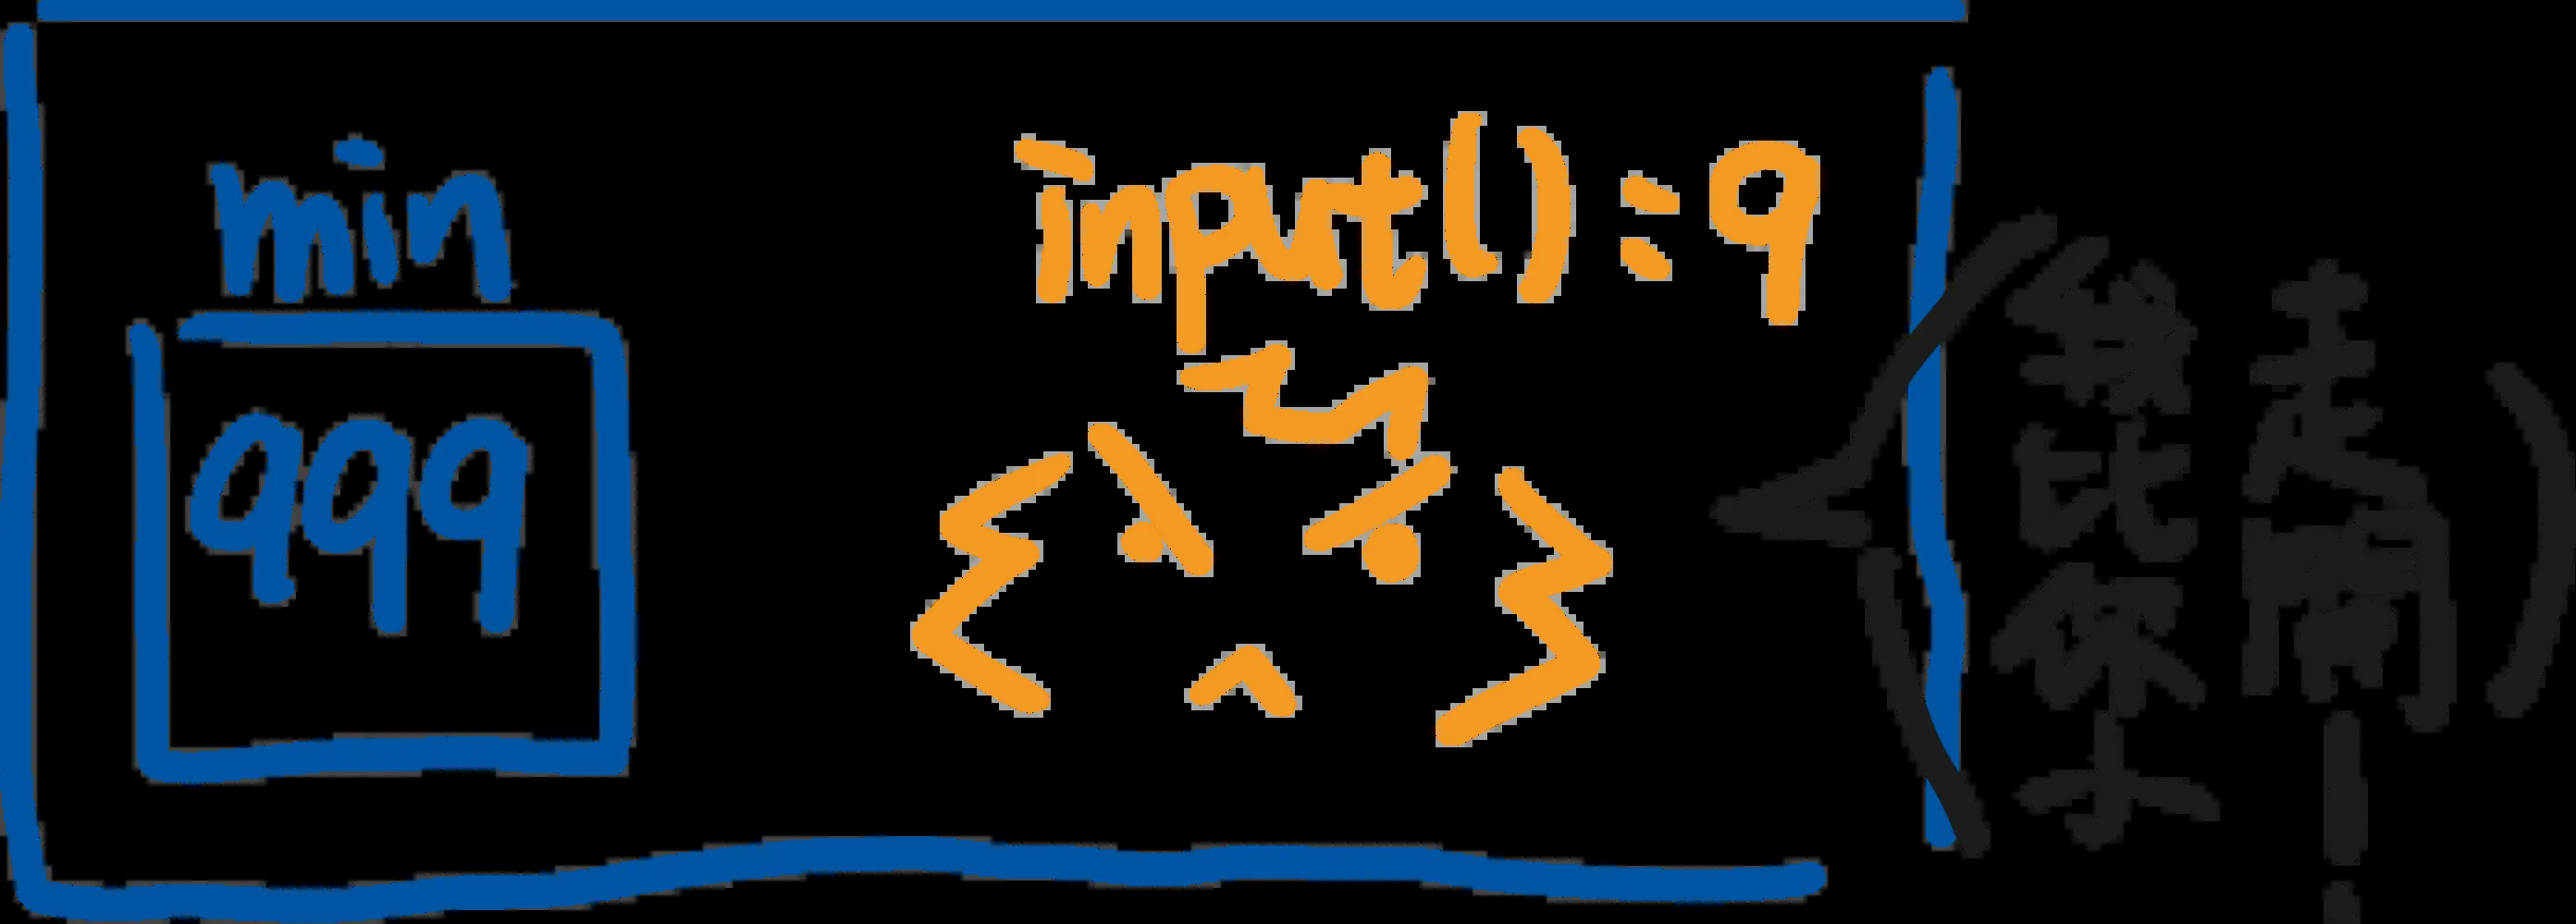 min
999
input():9
我比你小
走開!